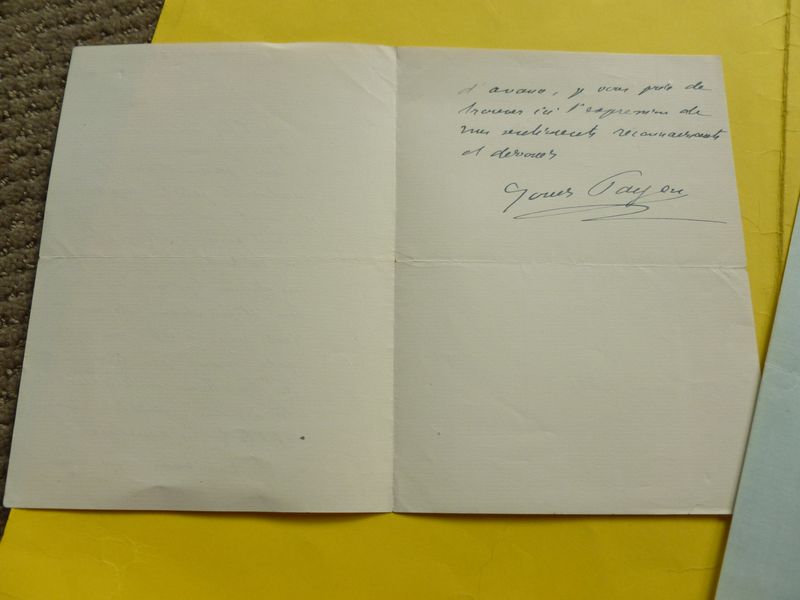 d'avance, je vous prie de
trouver ici l'expression de
mes sentiments reconnaissants
et dévoués
Payen